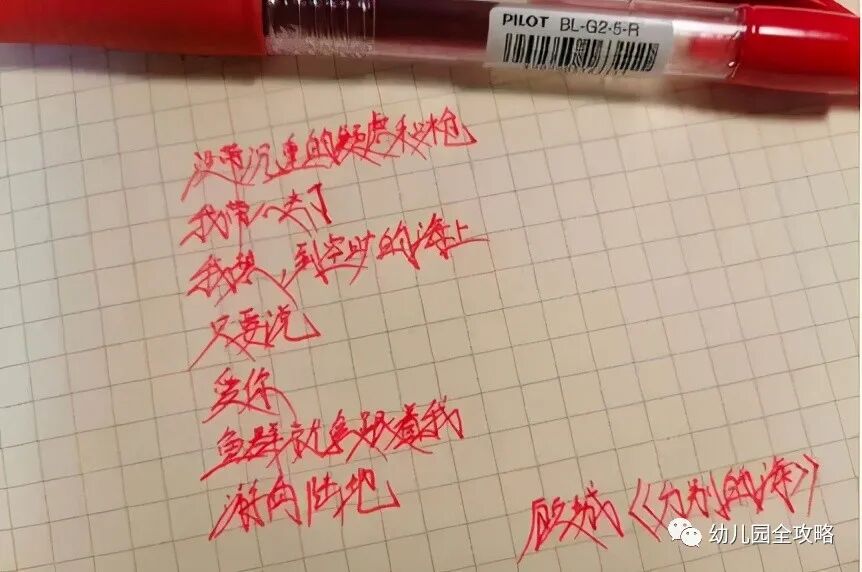 PILOT BL-G2-5-R
没带沉重的疑虑和枪
我带心去了
我想,到空旷的海上
只要说
爱你
鱼群就会跟着我
游向陆地
顾城《分别的海》
幼儿园全攻略